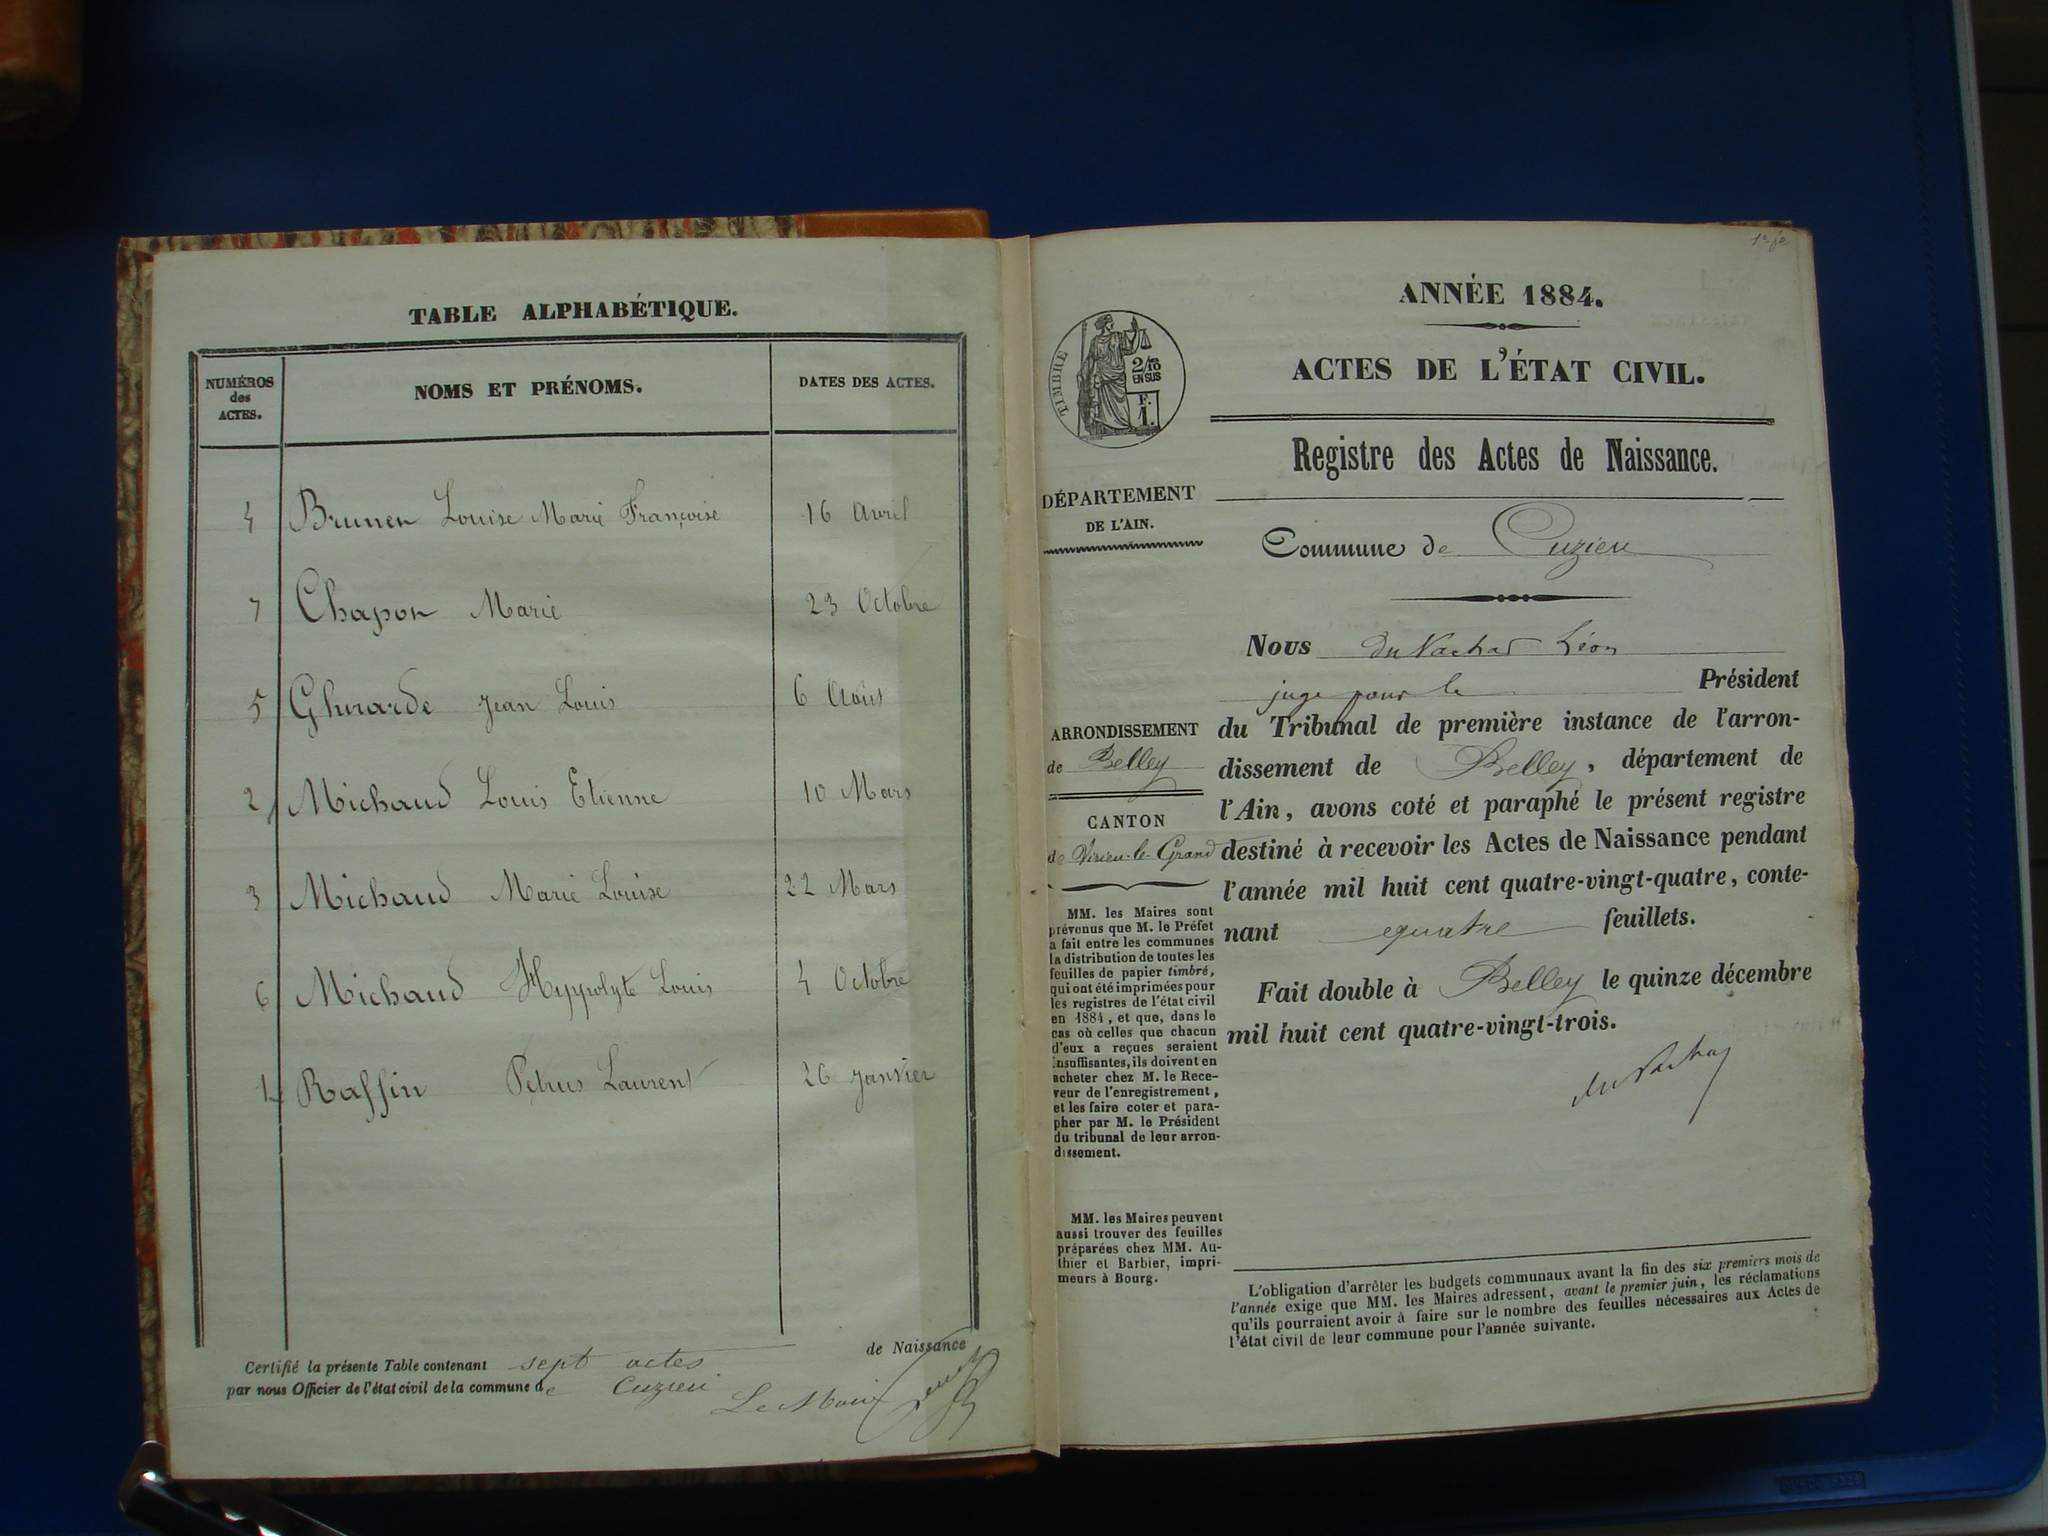 TABLE ALPHABÉTIQUE.
NUMÉROS
des
ACTES.
NOMS ET PRÉNOMS.
DATES DES ACTES.
4 Brunen Louise Marie Françoise 16 Avril
7 Chapon Marie 23 Octobre
5 Jean Louis 6 Août
2 Michaud Louis Etienne 10 Mars
3 Michaud Marie Louise 22 Mars
6 Michaud Hyppolyte Louis 4 Octobre
1 Raffin Petrus Laurent 26 Janvier
Certifié la présente Table contenant sept actes de Naissance
par nous Officier de l'état civil de la commune de Cuzieu
Le Maire
1er f.
ANNÉE 1884.
ACTES DE L'ÉTAT CIVIL.
TIMBRE
2/10
EN SUS
F.
1.
Registre des Actes de Naissance.
DÉPARTEMENT
DE L'AIN.
Commune de Cuzieu
Nous Léon
juge pour le Président
du Tribunal de première instance de l'arron-
dissement de Belley, département de
l'Ain, avons coté et paraphé le présent registre
destiné à recevoir les Actes de Naissance pendant
l'année mil huit cent quatre-vingt-quatre, conte-
nant quatre feuillets.
Fait double à Belley le quinze décembre
mil huit cent quatre-vingt-trois.
ARRONDISSEMENT
de Belley
CANTON
de Virieu-le-Grand
MM. les Maires sont
prévenus que M. le Préfet
a fait entre les communes
la distribution de toutes les
feuilles de papier timbré,
qui ont été imprimées pour
les registres de l'état civil
en 1884, et que, dans le
cas où celles que chacun
d'eux a reçues seraient
insuffisantes, ils doivent en
acheter chez M. le Rece-
veur de l'enregistrement,
et les faire coter et para-
pher par M. le Président
du tribunal de leur arron-
dissement.
MM. les Maires peuvent
aussi trouver des feuilles
préparées chez MM. Au-
thier et Barbier, impri-
meurs à Bourg.
L'obligation d'arrêter les budgets communaux avant la fin des six premiers mois de
l'année exige que MM. les Maires adressent, avant le premier juin, les réclamations
qu'ils pourraient avoir à faire sur le nombre des feuilles nécessaires aux Actes de
l'état civil de leur commune pour l'année suivante.